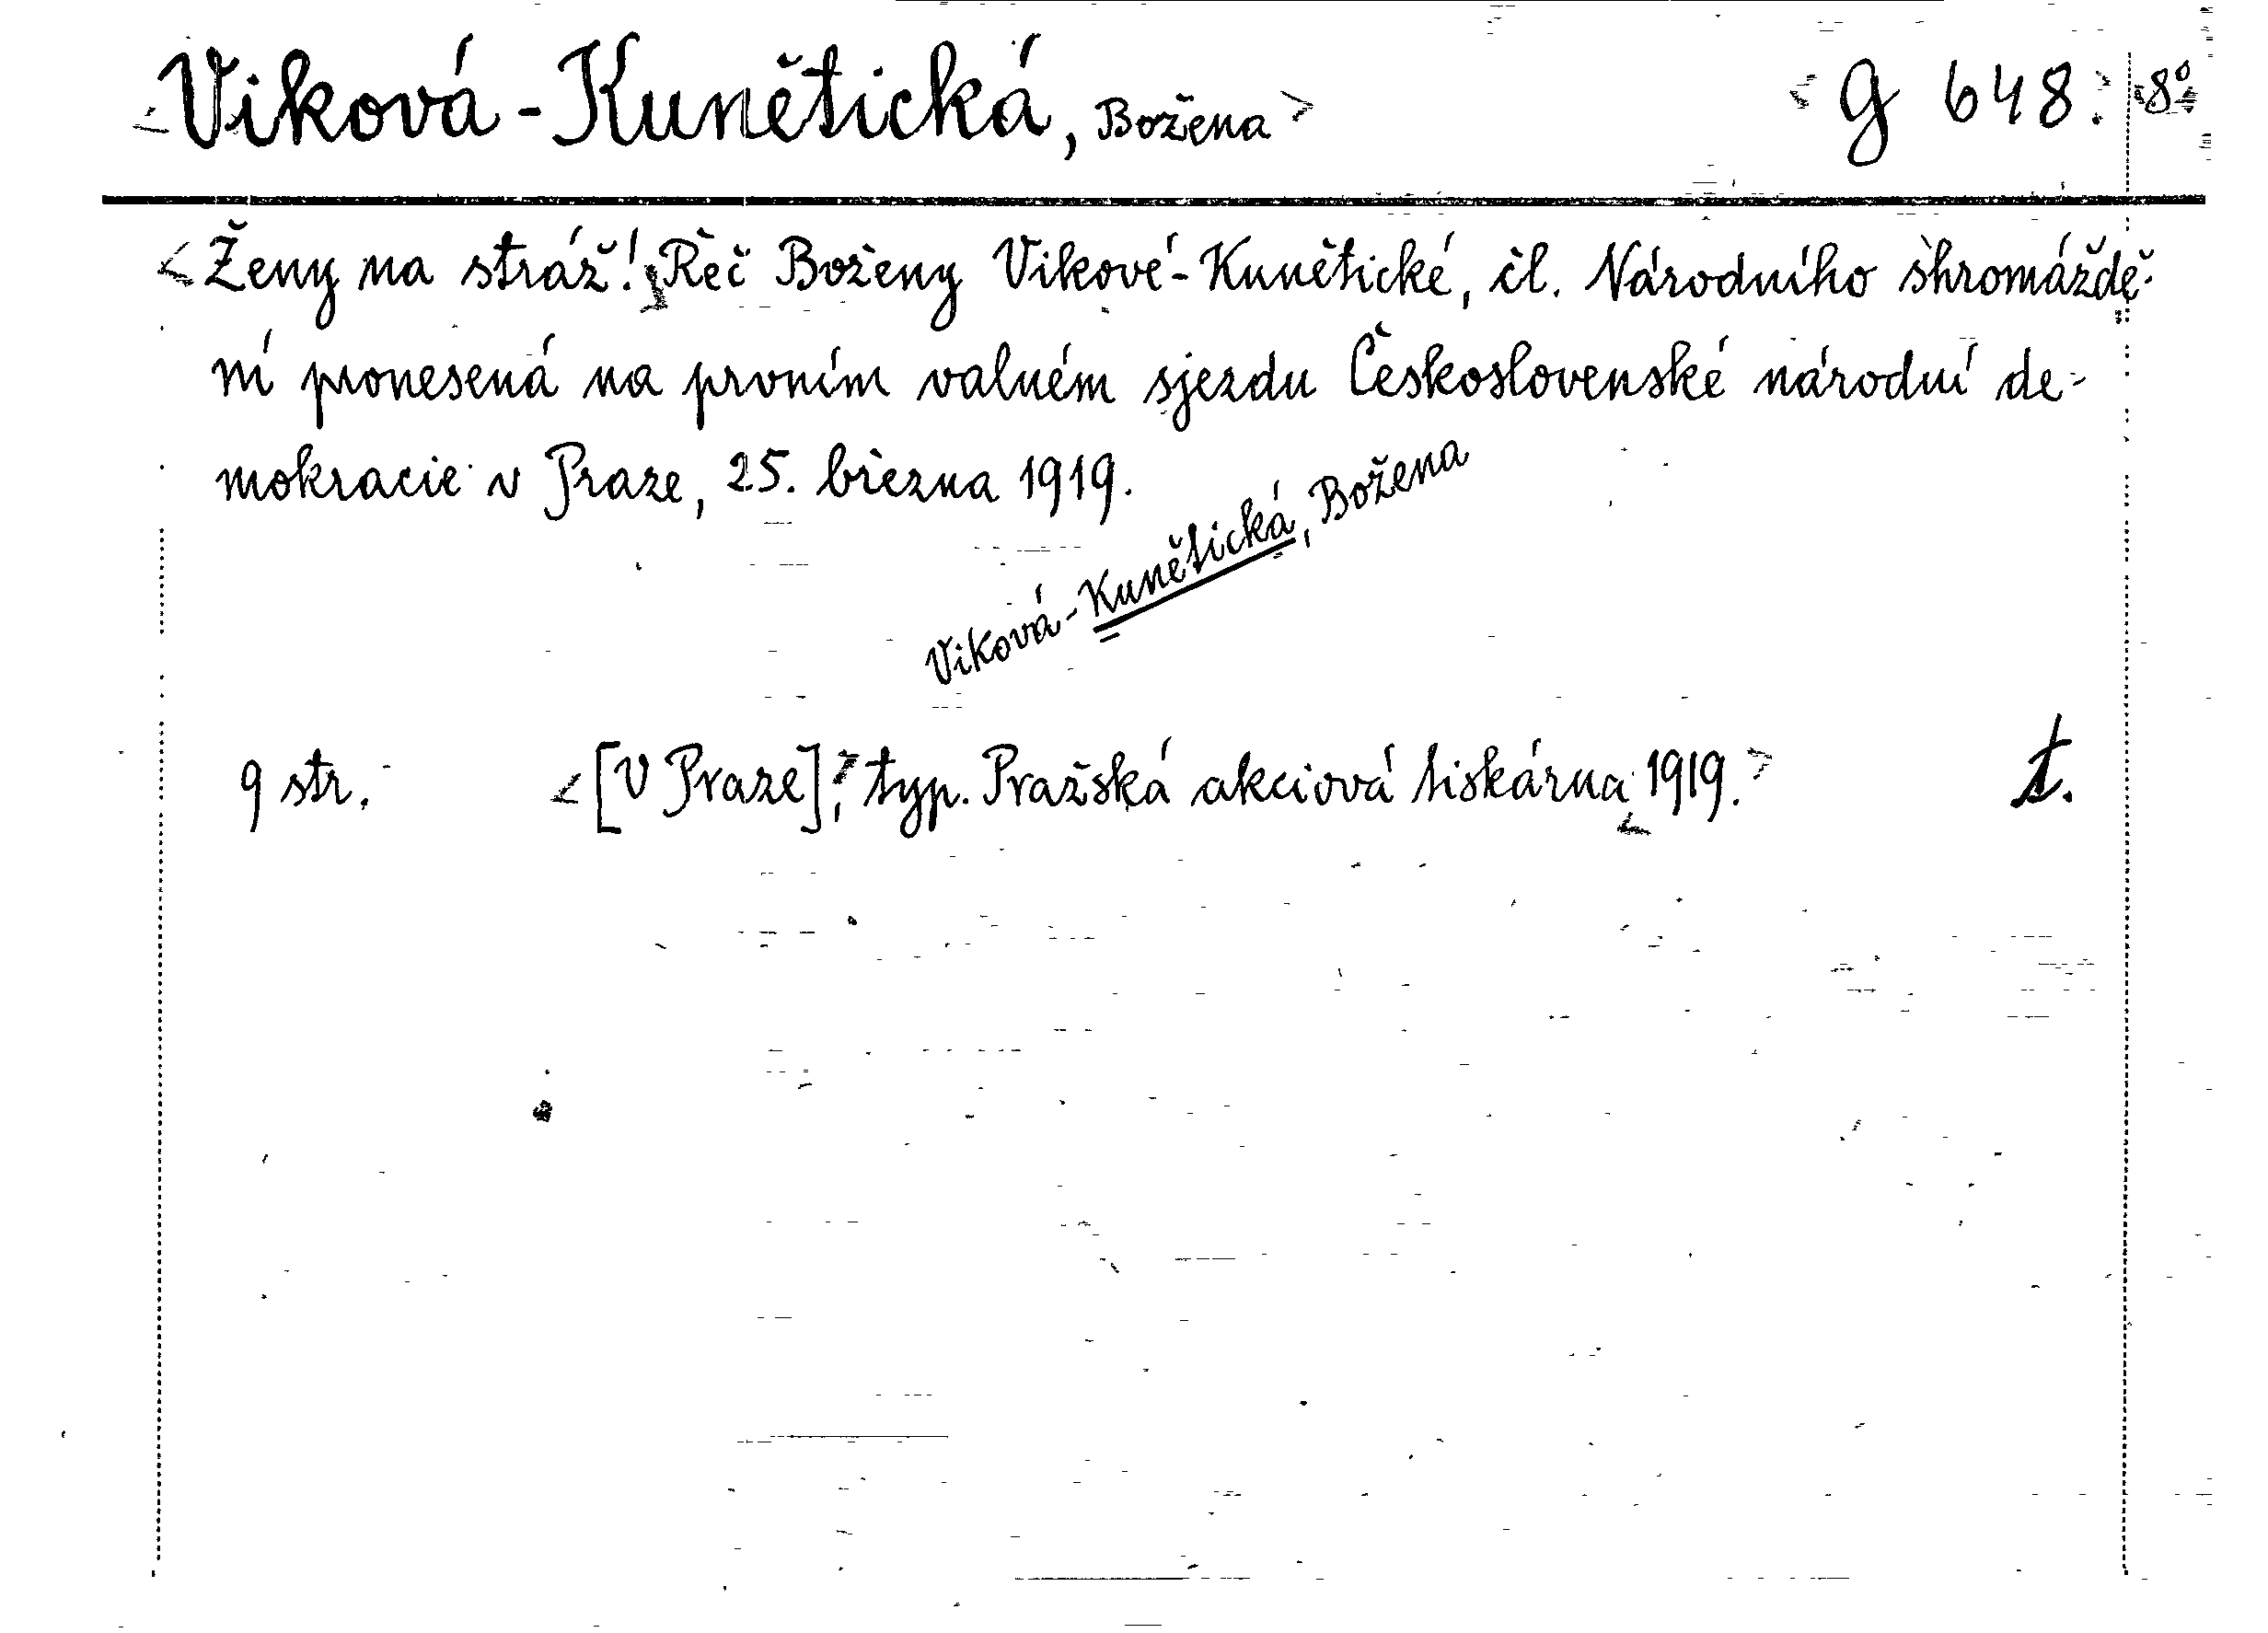 <Viková-Kunětická, Božena> <g 648.> <8°>
<Ženy na stráž!> Řeč Boženy Vikové-Kunětické, čl. Národního shromáždě-
ní pronesená na prvním valném sjezdu Československé národní de-
mokracie v Praze, 25. března 1919.
Viková-Kunětická, Božena
9 str. <[V Praze],> typ. Pražská akciová tiskárna <1919.> t.